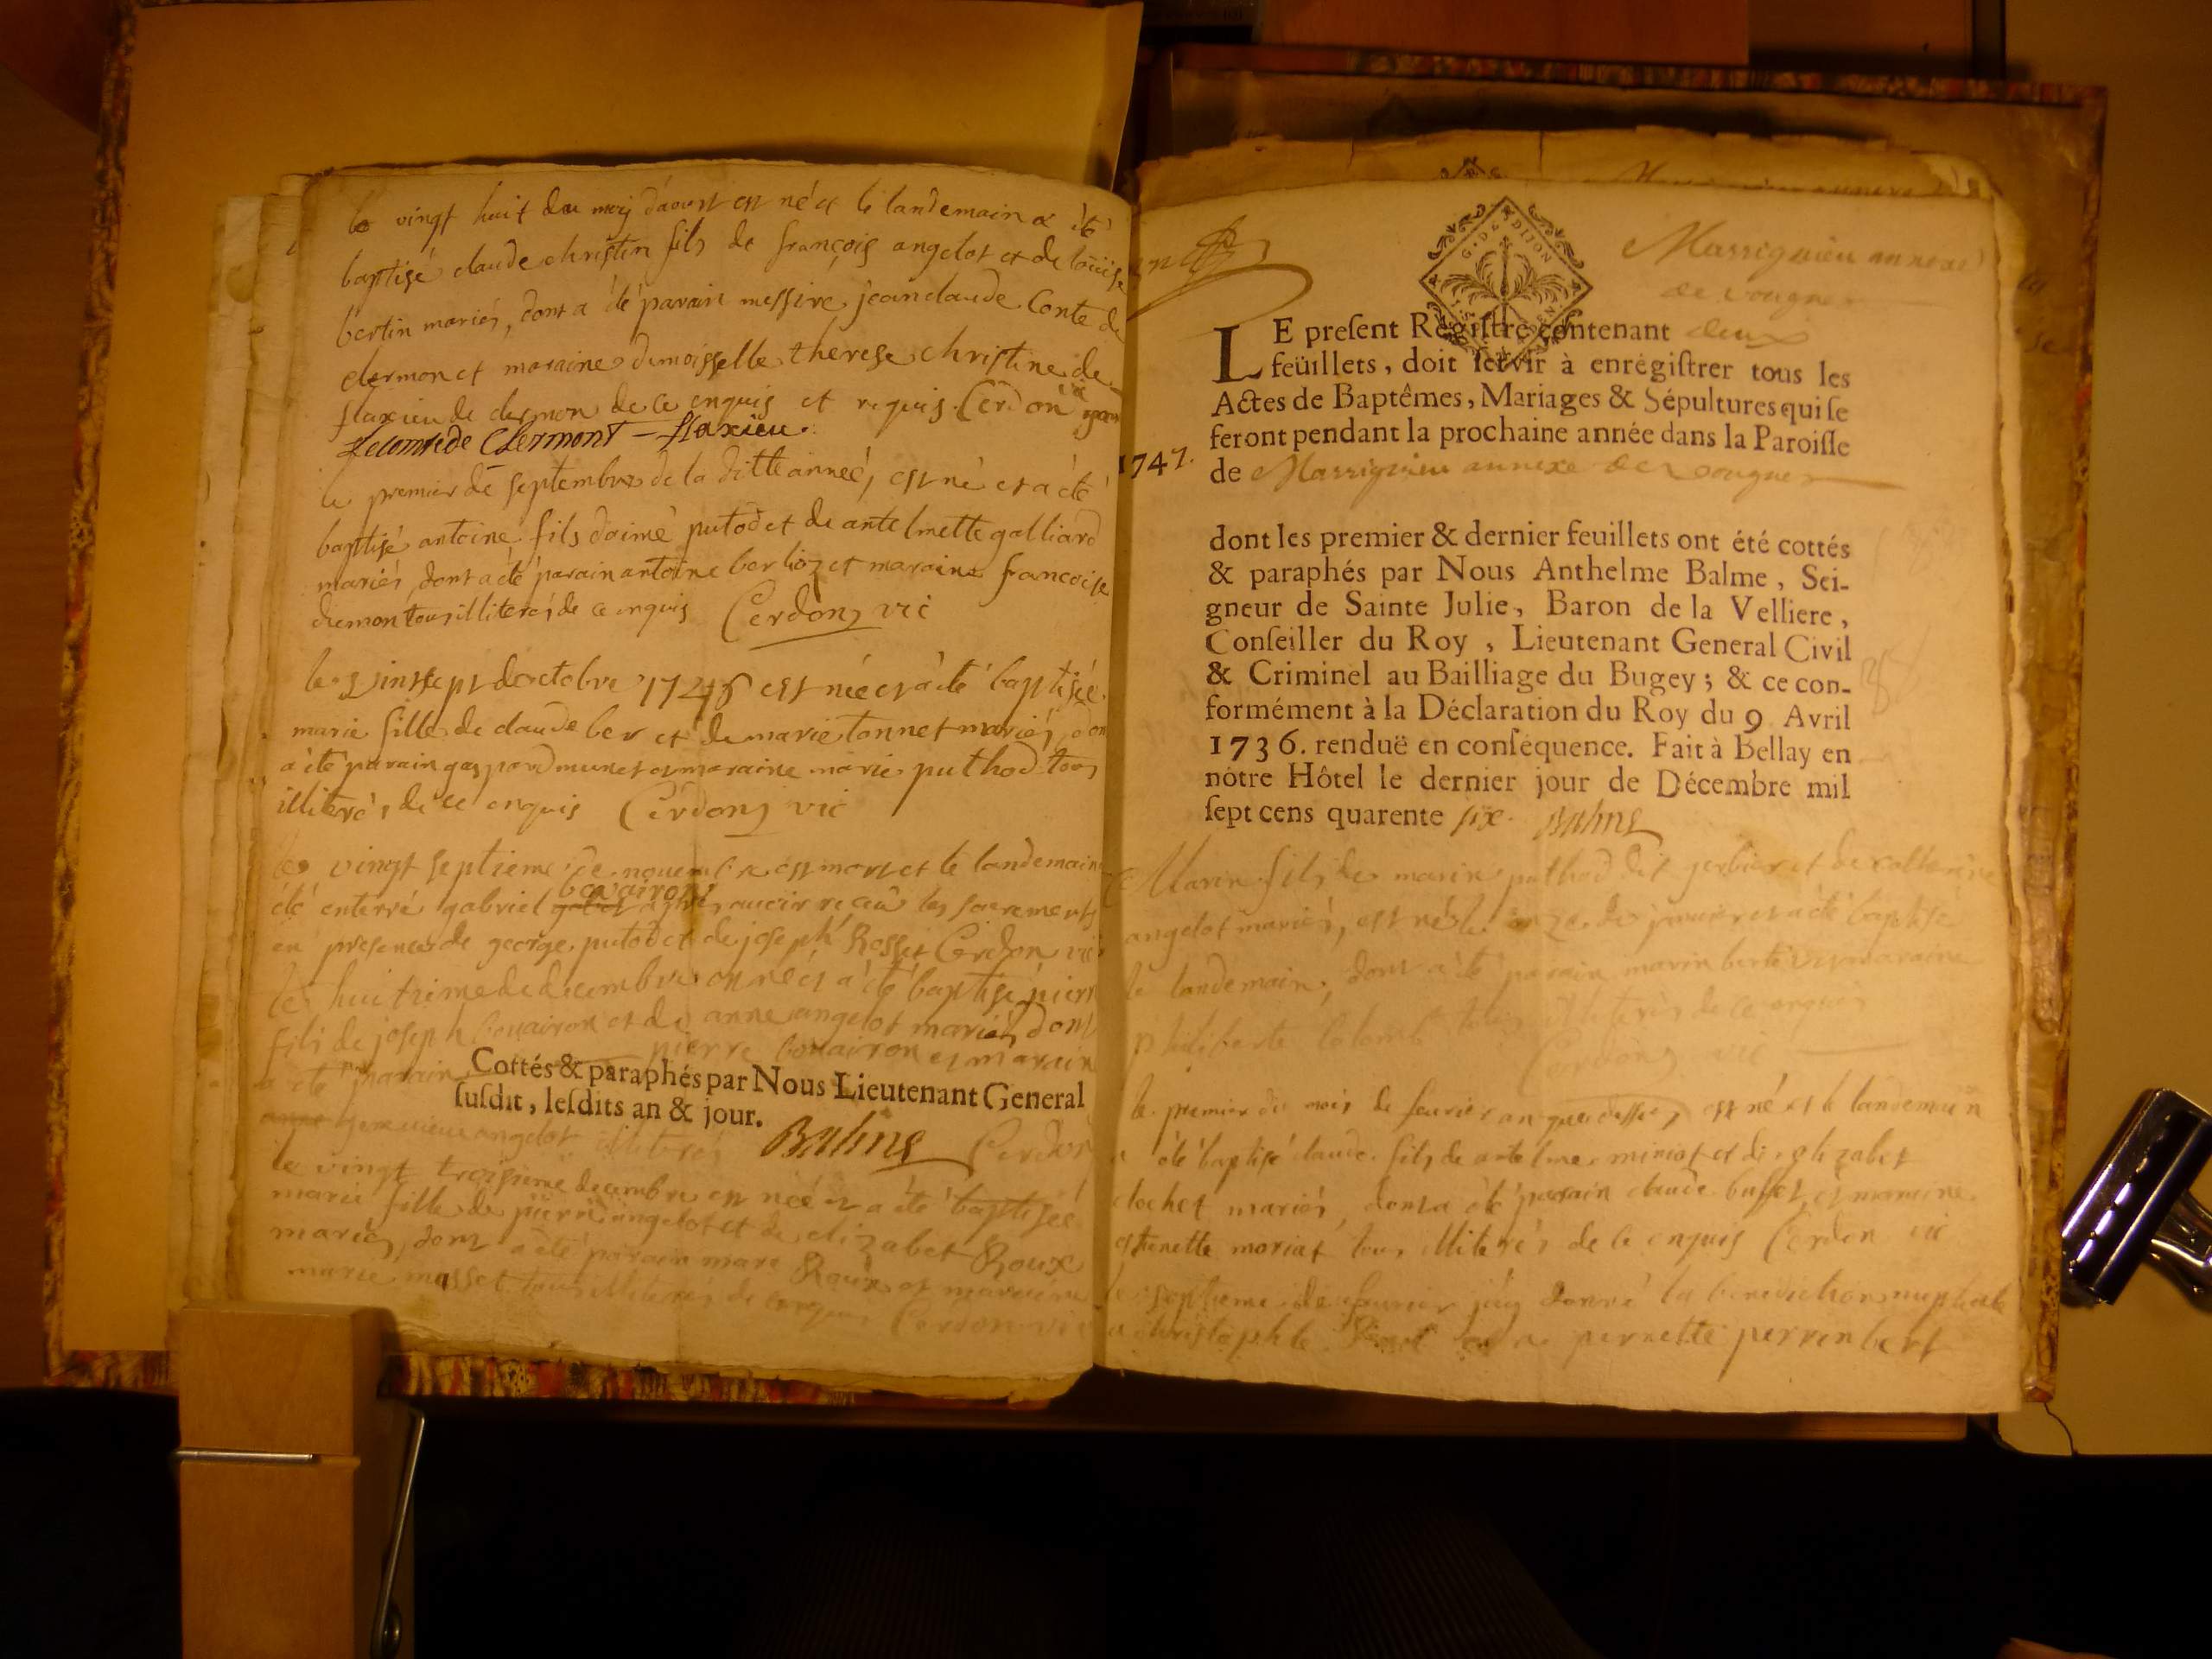 le vingt huit du moy daoust est né et le landemain a été
baptisé claude christin fils de françois angelot et de loüise
bertin mariés, dont a été parain messire jean claude Conte de
clermon et maraine dimoisselle therese christine de
flaxieu de clermon de ce enquis et requis. Cerdon vic
Lecomte de Clermont - flaxieu.
le premier de septembre de la ditte anneé, est né et a été
baptisé antoine fils daimé putod et de antelmette galliard
mariés, dont a été parain antoine berlioz et maraine francoise
diemon tous illiterés de ce enquis Cerdon vic
le vint sept doctobre 1746 est née et a été baptisée
marie fille de claude ber et de marie tonnet mariés, don
a été parain gaspard munet et maraine marie puthod tous
illiterés de ce enquis Cerdon vic
le vingt septieme de novembre est mort et le landemain
été enterré gabriel bovairon apres avoir reçeu les sacrements
en presence de george putod et de joseph Rosset Cerdon vic
le huitieme de decembre est né et a été baptisé pierre
fils de joseph bouairon et de anne angelot mariés dont
a été parain pierre bouairon et marain
Cottés & paraphés par Nous Lieutenant General
susdit, lesdits an & jour.
angelot illiterés Balme Cerdon
le vingt troisieme decembre est née et a été baptisée
marie fille de pierre angelot et de elizabet Roux
mariés, dont a été parain marc Roux et maraine
marie masset tous illiterés de ce enquis Cerdon vic
G. DE DIJON
Massignieu annexe
de vougne
LE present Registre contenant deux
feüillets, doit servir à enrégistrer tous les
Actes de Baptêmes, Mariages & Sépultures qui se
feront pendant la prochaine année dans la Paroisse
1747. de Massignieu annexe de vougne
dont les premier & dernier feuillets ont été cottés
& paraphés par Nous Anthelme Balme, Sei-
gneur de Sainte Julie, Baron de la Velliere,
Conseiller du Roy, Lieutenant General Civil
& Criminel au Bailliage du Bugey; & ce con-
formément à la Déclaration du Roy du 9 Avril
1736. renduë en conséquence. Fait à Bellay en
nôtre Hôtel le dernier jour de Décembre mil
sept cens quarente six. Balme
Marin fils de marin puthod dit gerbier et de catherine
angelot mariés, est né le onze de janvier et a été baptisé
le landemain, dont a été parain marin bertin et maraine
philiberte colomb tous illiterés de ce enquis
Cerdon vic
le premier du mois de fevrier an que dessus, est né et le landemain
a été baptisé claude fils de antelme miniot et de elizabet
clochet mariés, dont a été parain claude buffet, et maraine
etienette moriat tous illiterés de ce enquis Cerdon vic
le septieme de fevrier jay donné la benediction nuptiale
a christophle pernette perrin bert